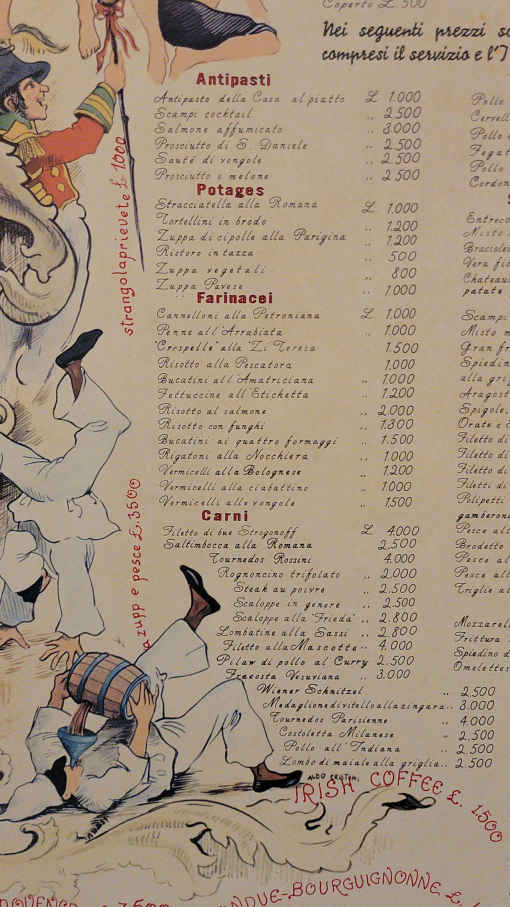 Coperto £. 500
Nei seguenti prezzi
compresi il servizio e l'I
Antipasti
Antipasto della Casa al piatto £ 1.000
Scampi cocktail .. 2.500
Salmone affumicato .. 3.000
Prosciutto di S. Daniele .. 2.500
Sauté di vongole .. 2.500
Prosciutto e melone .. 2.500
Potages
Stracciatella alla Romana £ 1.000
Tortellini in brodo .. 1.200
Zuppa di cipolle alla Parigina .. 1.200
Ristoro in tazza .. 500
Zuppa vegetali .. 800
Zuppa Pavese .. 1.000
Farinacei
Cannelloni alla Petroniana £ 1.000
Penne all'Arrabiata .. 1.000
"Crespelle" alla "Zi Teresa 1.500
Risotto alla Pescatora 1,000
Bucatini all'Amatriciana .. 1.000
Fettuccine all'Etichetta .. 1.200
Risotto al salmone .. 2.000
Risotto con funghi .. 1.300
Bucatini ai quattro formaggi .. 1.500
Rigatoni alla Nocchiera .. 1.000
Vermicelli alla Bolognese .. 1.200
Vermicelli alla ciabattino .. 1.000
Vermicelli alle vongole .. 1500
Carni
Filetto di bue Strogonoff £ 4.000
Saltimbocca alla Romana 2.500
Tournedos Rossini 4.000
Rognoncino trifolato .. 2.000
Steak au poivre .. 2.500
Scaloppe in genere .. 2.500
Scaloppe alla "Frieda" .. 2.800
Lombatine alla Sassi .. 2.800
Filetto alla Mascotte .. 4.000
Pilaw di pollo al Curry 2.500
Fracosta Vesuviana .. 3.000
Wiener Schnitzel .. 2.500
Medaglione di vitello alla zingara .. 3.000
Tournedos Parisienne .. 4.000
Costoletta Milanese .. 2.500
Pollo all'Indiana .. 2.500
Lombo di maiale alla griglia .. 2.500
strangolaprievete £. 1000
zupp e pesce £. 3500
IRISH COFFEE £. 1500
NDUE-BOURGUIGNONNE £.
Pollo
Cervell
Pollo
Fegat
Pollo
Cordon
Entreco
Misto
Braciole
Vera fio
Chateau
patate
Scampi
Misto m
Gran fr
Spiedin
alla gri
Aragost
Spigole,
Orate e
Filetto di
Filetto di
Filetto di
Filetti di
Polipetti
gamberon
Pesce al
Brodetto
Pesce al
Pesce al
Triglie al
Mozzarel
Frittura
Spiedino d
Omelettes